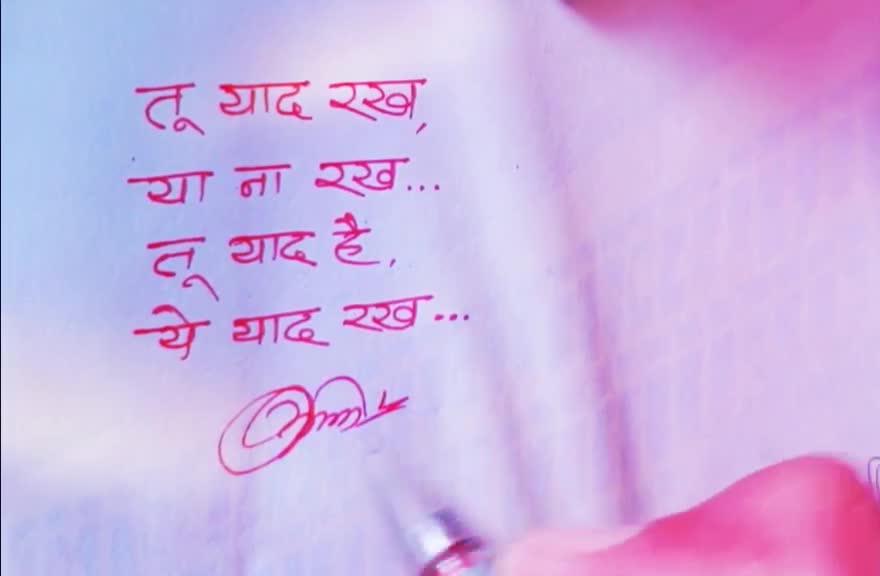 तू याद रख,
या ना रख...
तू याद है,
ये याद रख...